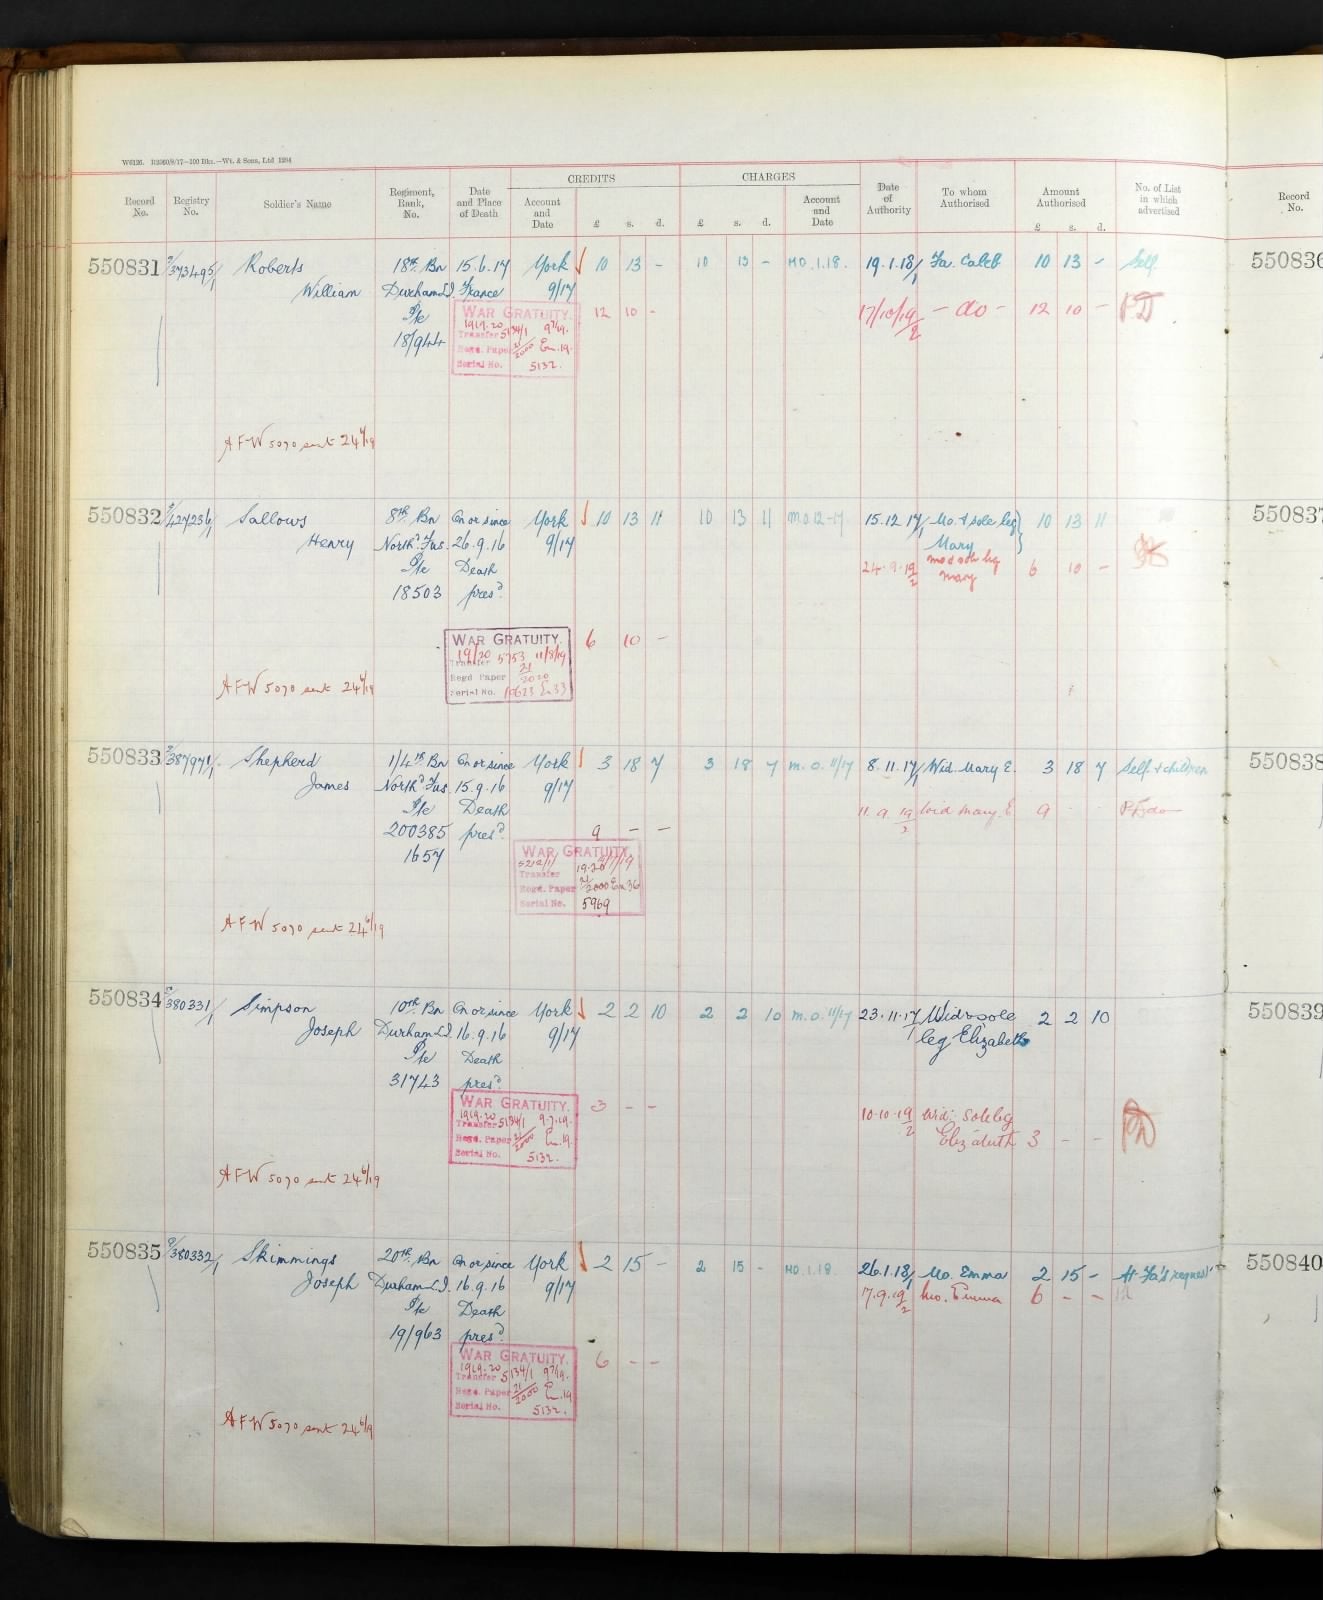 W6126. R2060/8/17—100 Bks.—Wt. & Sons, Ltd 1294
CREDITS CHARGES
Record No. Registry No. Soldier's Name Regiment, Rank, No. Date and Place of Death Account and Date £ s. d. £ s. d. Account and Date Date of Authority To whom Authorised Amount Authorised £ s. d. No. of List in which advertised Record No.
550831 373495/1 Roberts 18th Bn 15.6.17 York 10 13 - 10 13 - MO.1.18. 19.1.18/1 Fa. Caleb 10 13 - Self 550836
William Durham L.I. France 9/17
Pte WAR GRATUITY. 12 10 - 17/10/19/2 - do - 12 10 -
18/944 1919.20
Transfer 5134/1 9/7/19.
Regd. Paper 21/2000 En.19.
Serial No. 5132.
AFW 5070 sent 24 6/19
550832 427236/1 Sallows 8th Bn On or since York 10 13 11 10 13 11 MO 12-17 15.12.17/1 Mo. & sole leg 10 13 11 550837
Henry North'd Fus. 26.9.16 9/17 Mary
Pte Death 24.9.19/2 mo & sole leg 6 10 -
18503 pres'd. Mary
WAR GRATUITY. 6 10 -
19/20
Transfer 5753 11/8/19
Regd Paper 21/2000
Serial No. En 33
AFW 5070 sent 24 6/19
550833 387971/1 Shepherd 1/4th Bn On or since York 3 18 7 3 18 7 M.O. 11/17 8.11.17/1 Wid. Mary E. 3 18 7 Self & children 550838
James North'd Fus. 15.9.16 9/17
Pte Death 11.9.19/2 Wid Mary E 9
200385 pres'd. 9 - -
1657 WAR GRATUITY.
19.20
Transfer
Regd. Paper 21/2000 En 36
Serial No. 5969
AFW 5070 sent 24 6/19
550834 380331/1 Simpson 10th Bn On or since York 2 2 10 2 2 10 M.O. 11/17 23.11.17/1 Wid & sole 2 2 10 550839
Joseph Durham L.I. 16.9.16 9/17 leg Elizabeth
Pte Death
31743 pres'd.
WAR GRATUITY. 3 - - 10.10.19/2 Wid: Sole leg
1919.20 Elizabeth 3 - -
Transfer 5134/1 9.7.19.
Regd. Paper 21/2000 En.19.
Serial No. 5132.
AFW 5070 sent 24 6/19
550835 380332/1 Skimmings 20th Bn On or since York 2 15 - 2 15 - MO.1.18. 26.1.18/1 Mo. Emma 2 15 - At Fa's request 550840
Joseph Durham L.I. 16.9.16 9/17 7.9.19/2 Mo. Emma 6 - -
Pte Death
19/963 pres'd.
WAR GRATUITY. 6 - -
1919.20
Transfer 5134/1 9/7/19.
Regd. Paper 21/2000 En.19
Serial No. 5132.
AFW 5070 sent 24 6/19